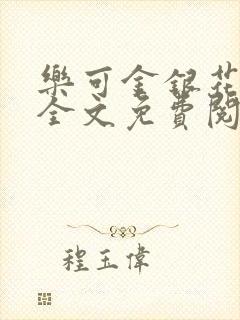 樂可金銀花
全文免費閱
程玉偉